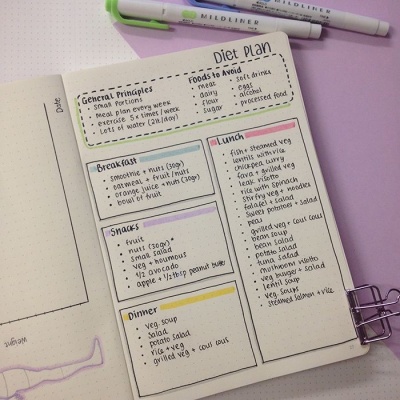 MILDLINER
MILDLINER
DIET PLAN
General Principles
• small portions
• meal plan every week
• exercise 5x times / week
• Lots of water (2l/day)
Foods to Avoid
• meat
• dairy
• flour
• sugar
• soft drinks
• eggs
• alcohol
• processed food
Breakfast
• smoothie + nuts (30gr)
• oatmeal + fruit/nuts
• orange juice + nuts (30gr)
• bowl of fruit
Snacks
• fruit
• nuts (30gr)*
• small salad
• veg + houmous
• 1/2 avocado
• apple + 1/2 tbsp peanut butter
Dinner
• veg soup
• salad
• potato salad
• rice + veg
• grilled veg + cous cous
Lunch
• fish + steamed veg
• lentils with rice
• chickpea curry
• fava + grilled veg
• leek risotto
• rice with spinach
• stirfry veg + noodles
• falafel + salad
• sweet potatoes + salad
• peas
• grilled veg + cous cous
• bean soup
• bean salad
• potato salad
• tuna salad
• mushroom risotto
• veg burger + salad
• lentil soup
• veg soups
• steamed salmon + rice
Date
Weight